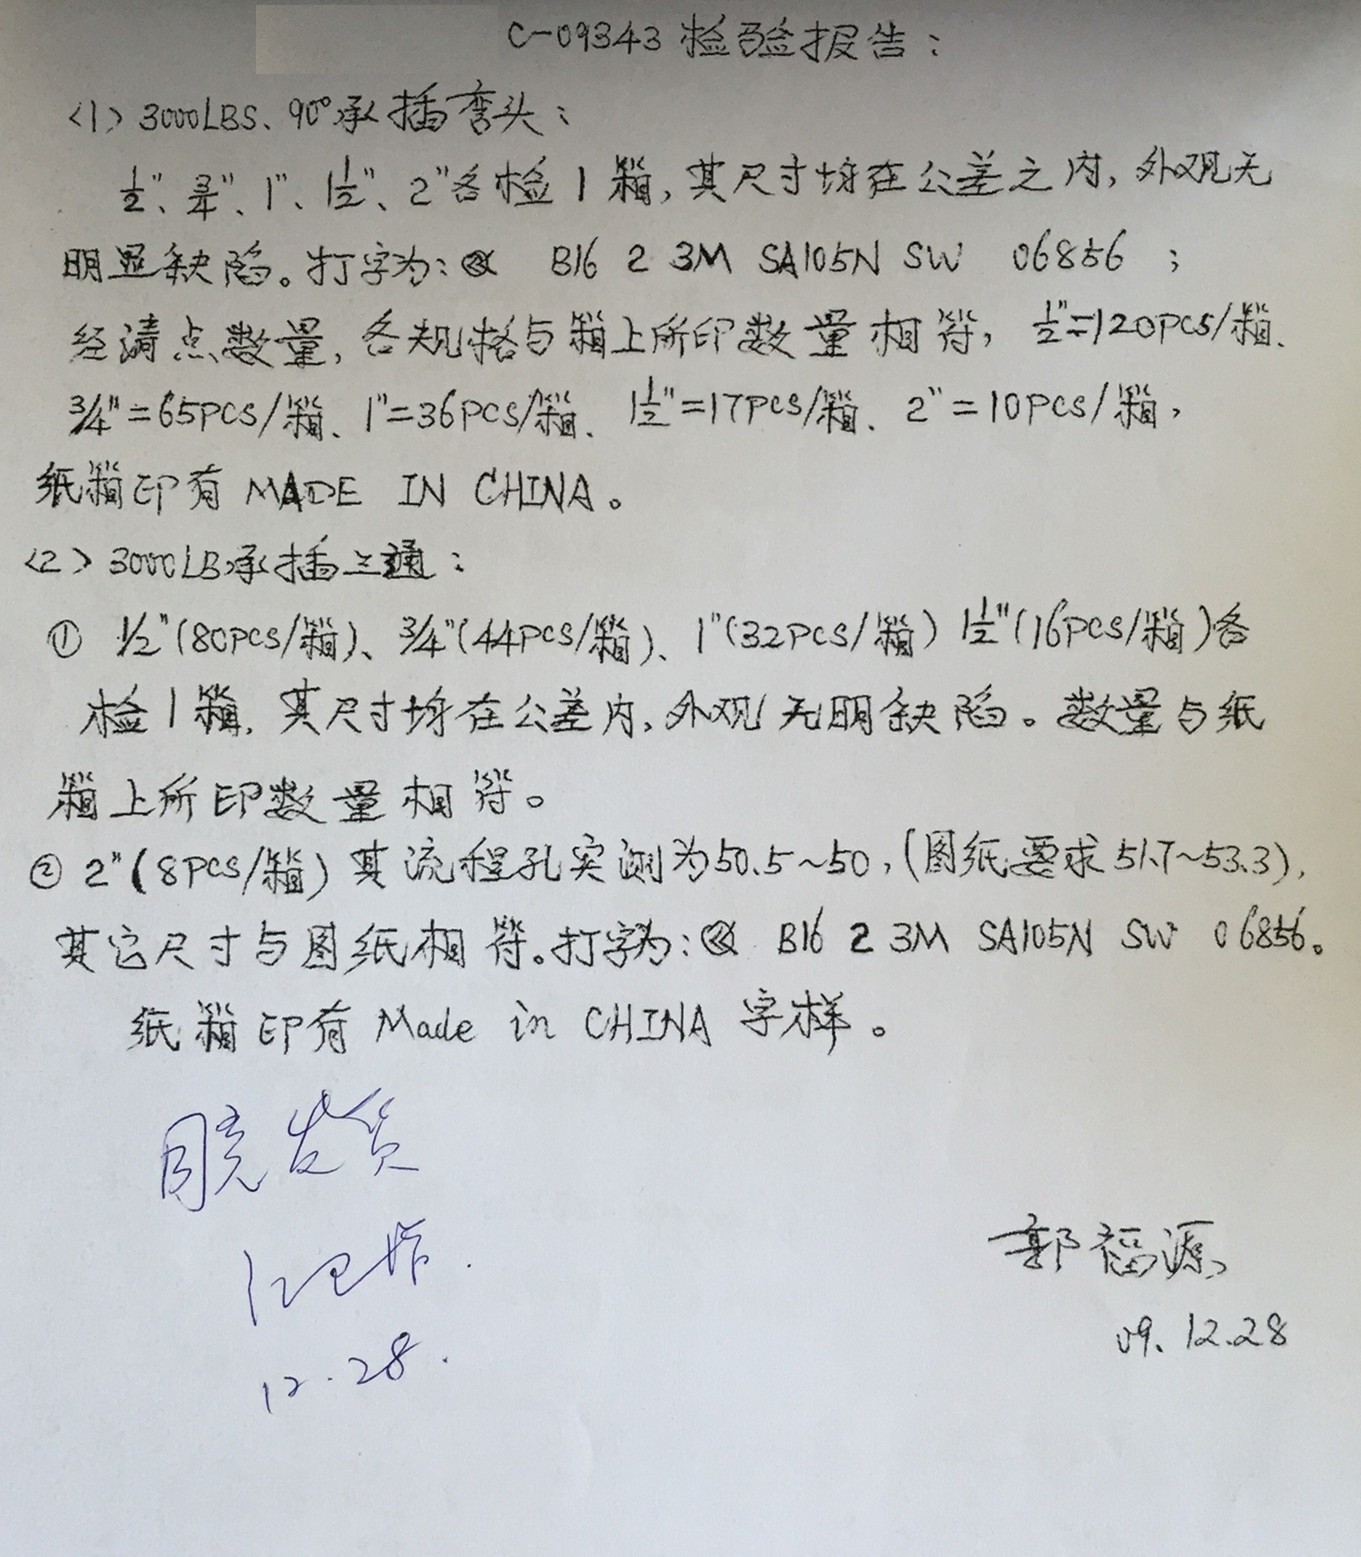 C-09343 检验报告：
<1> 3000LBS、90°承插弯头：
1/2"、3/4"、1"、1 1/2"、2"各检1箱，其尺寸均在公差之内，外观无
明显缺陷。打字为： B16 2 3M SA105N SW 06856 ；
经清点数量，各规格与箱上所印数量相符，1/2"=120PCS/箱、
3/4"=65PCS/箱、1"=36PCS/箱、1 1/2"=17PCS/箱、2"=10PCS/箱，
纸箱印有 MADE IN CHINA。
<2> 3000LB承插三通：
① 1/2"(80PCS/箱)、3/4"(44PCS/箱)、1"(32PCS/箱) 1 1/2"(16PCS/箱)各
检1箱，其尺寸均在公差内，外观无明缺陷。数量与纸
箱上所印数量相符。
② 2"(8PCS/箱) 其流程孔实测为50.5~50，(图纸要求51.7~53.3)，
其它尺寸与图纸相符。打字为： B16 2 3M SA105N SW 06856。
纸箱印有 Made in CHINA 字样。
发货
12.28.
郭福源
09.12.28